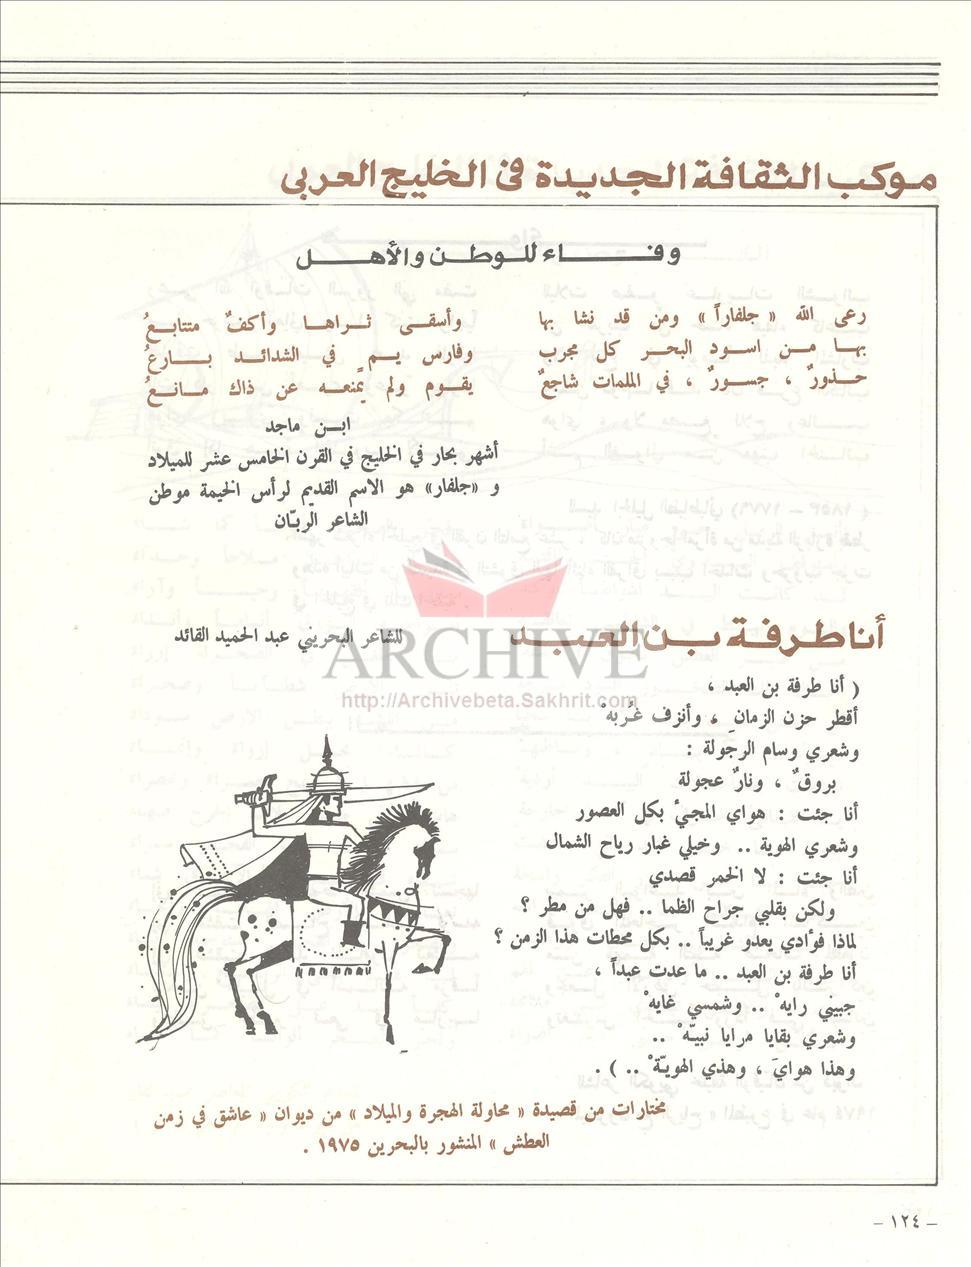 موكب الثقافة الجديدة في الخليج العربي
وفـــاء للوطن والأهـل
رعى الله « جلفاراً » ومن قد نشا بها وأسقى ثراها وأكفٌ متتابعُ
بها من اسود البحر كل مجرب وفارس يم في الشدائد بارعُ
حذورٌ ، جسورٌ ، في الملمات شاجعٌ يقوم ولم يمنعه عن ذاك مانعُ
ابن ماجد
أشهر بحار في الخليج في القرن الخامس عشر للميلاد
و «جلفار» هو الاسم القديم لرأس الخيمة موطن
الشاعر الربّان
ARCHIVE
http://Archivebeta.Sakhrit.com
أنا طرفة بن العبد
للشاعر البحريني عبد الحميد القائد
( أنا طرفة بن العبد ،
أقطر حزن الزمانِ ، وأنزف غُربهْ
وشعري وسام الرجولة :
بروقٌ ، ونارٌ عجولة
أنا جئت : هواي المجيءُ بكل العصور
وشعري الهوية .. وخيلي غبار رياح الشمال
أنا جئت : لا الخمر قصدي
ولكن بقلبي جراح الظما .. فهل من مطر ؟
لماذا فؤادي يعدو غريباً .. بكل محطات هذا الزمن ؟
أنا طرفة بن العبد .. ما عدت عبداً ،
جبيني رايهْ .. وشمسي غايهْ
وشعري بقايا مرايا نبيّهْ ..
وهذا هوايَ ، وهذي الهويّهْ .. ) .
مختارات من قصيدة « محاولة الهجرة والميلاد » من ديوان « عاشق في زمن
العطش » المنشور بالبحرين ١٩٧٥ .
– ١٢٤ –